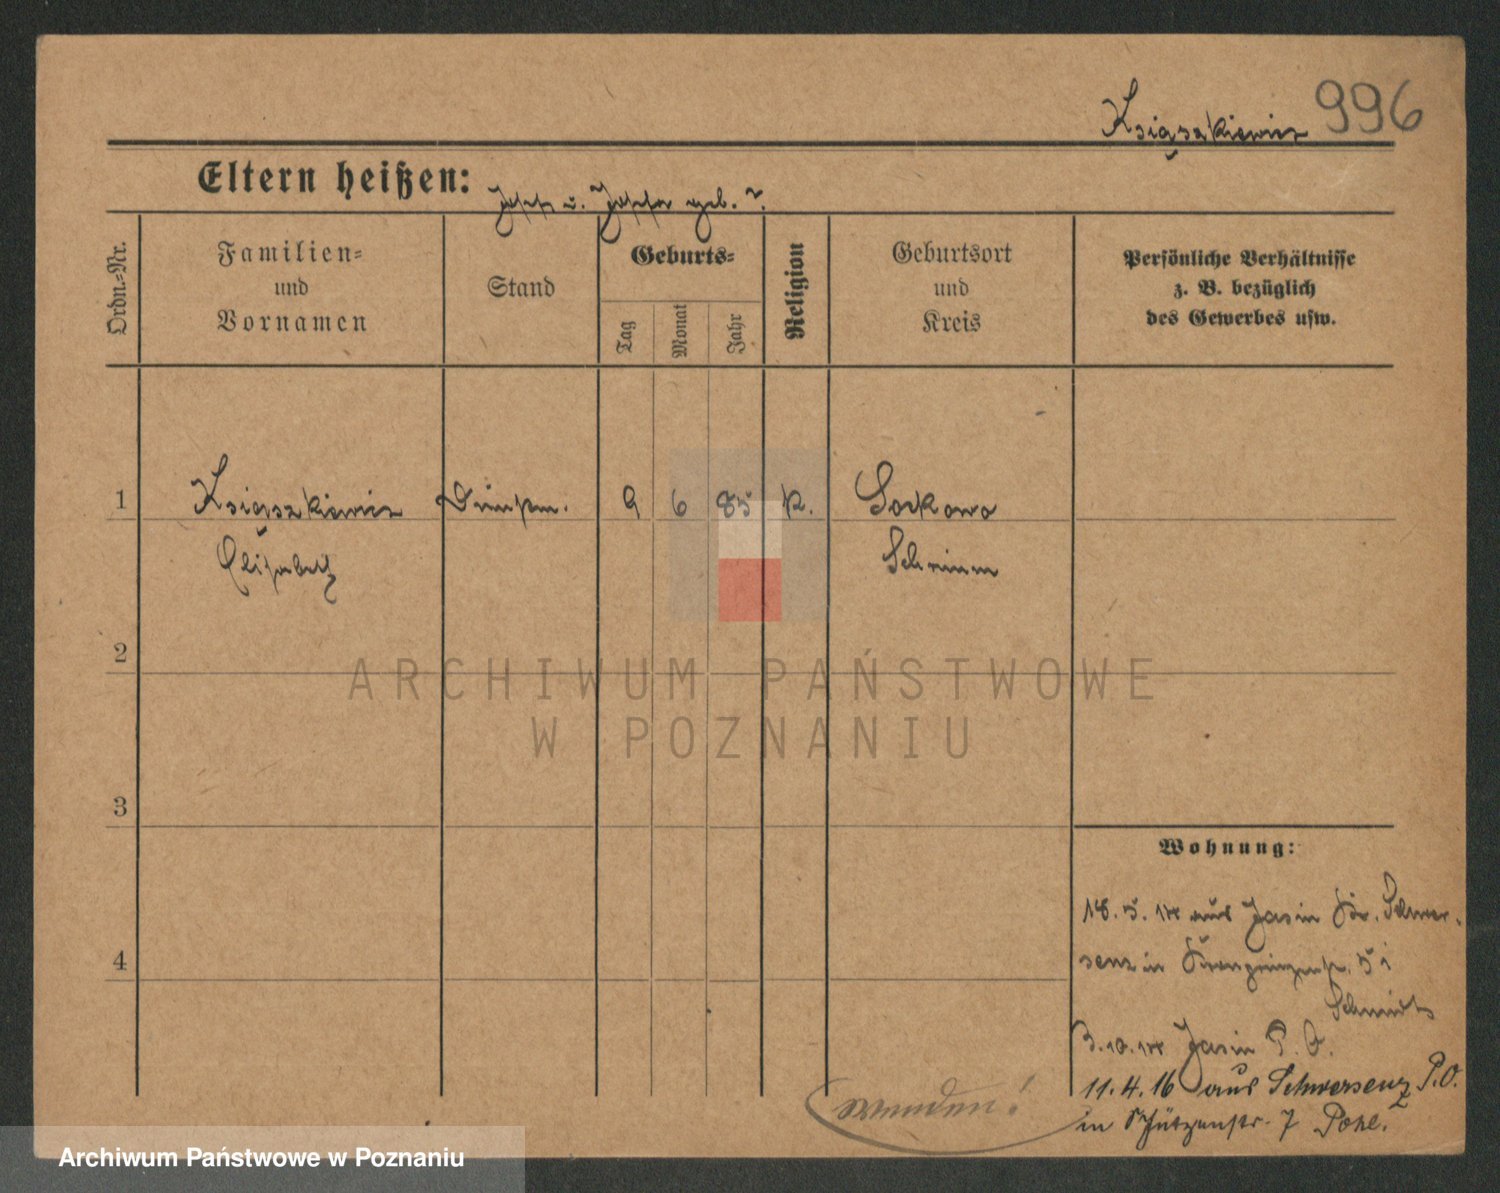 Książkiewicz 996
Eltern heißen: Josef u. Josefa geb. ?
Ordn.-Nr.
Familien-
und
Vornamen
Stand
Geburts-
Tag
Monat
Jahr
Religion
Geburtsort
und
Kreis
Persönliche Verhältnisse
z. B. bezüglich
des Gewerbes usw.
1 Książkiewicz 9 6 85 K.
Elisabeth Schrimm
2
3
4
ARCHIWUM PAŃSTWOWE
W POZNANIU
Wohnung:
18.5.14 aus Jasin Kr. Schwer-
senz in Kronprinzenstr. 51
Schmidt
3.10.14 Jasin P. O.
11.4.16 aus Schwersenz P.O.
in Schützenstr. 7 Pohl.
wenden!
Archiwum Państwowe w Poznaniu